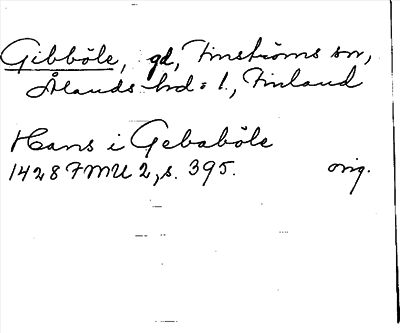 Gibböle, gd, Finströms sn,
Ålands hd : l., Finland
Hans i Gebaböle
1428 FMU 2, s. 395. orig.